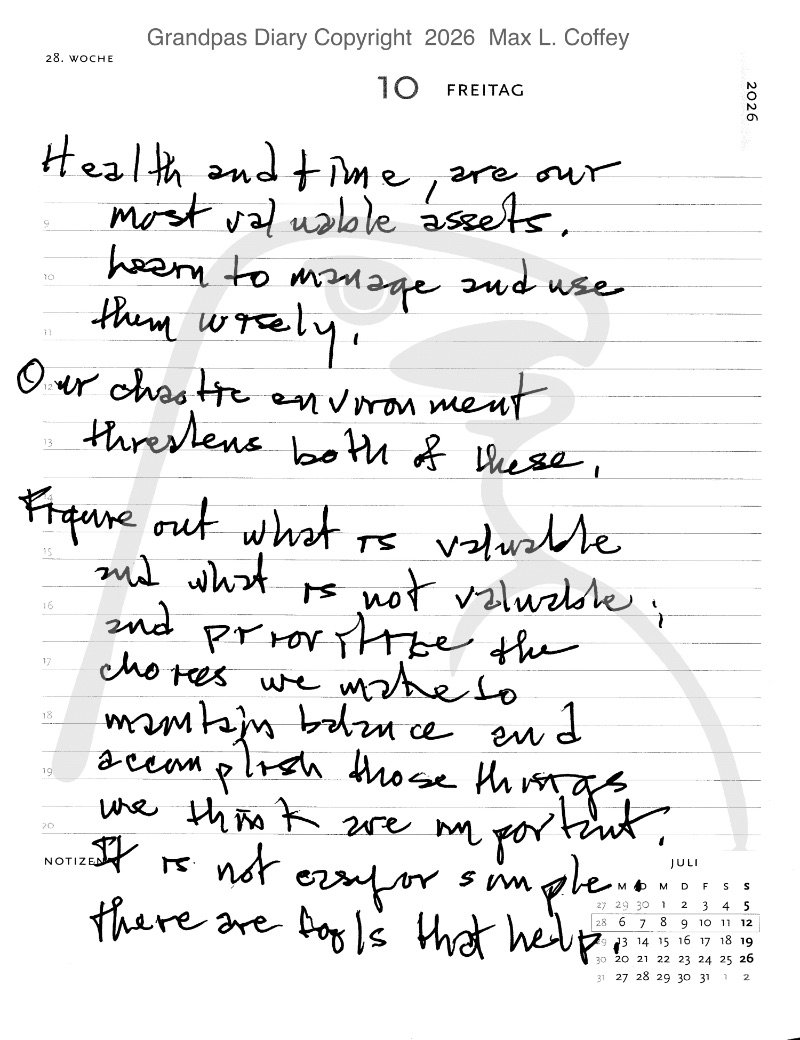 Grandpas Diary Copyright 2026 Max L. Coffey
28. WOCHE
10 FREITAG
2026
Health and time, are our
9
most valuable assets.
10
Learn to manage and use
11
them wisely.
12
Our chaotic environment
13
threatens both of these.
14
Figure out what is valuable
15
and what is not valuable,
16
and prioritize the
17
choices we make to
18
maintain balance and
19
accomplish those things
20
we think are important.
NOTIZEN
It is not easy or simple.
there are tools that help.
JULI
M D M D F S S
27 29 30 1 2 3 4 5
28 6 7 8 9 10 11 12
29 13 14 15 16 17 18 19
30 20 21 22 23 24 25 26
31 27 28 29 30 31 1 2